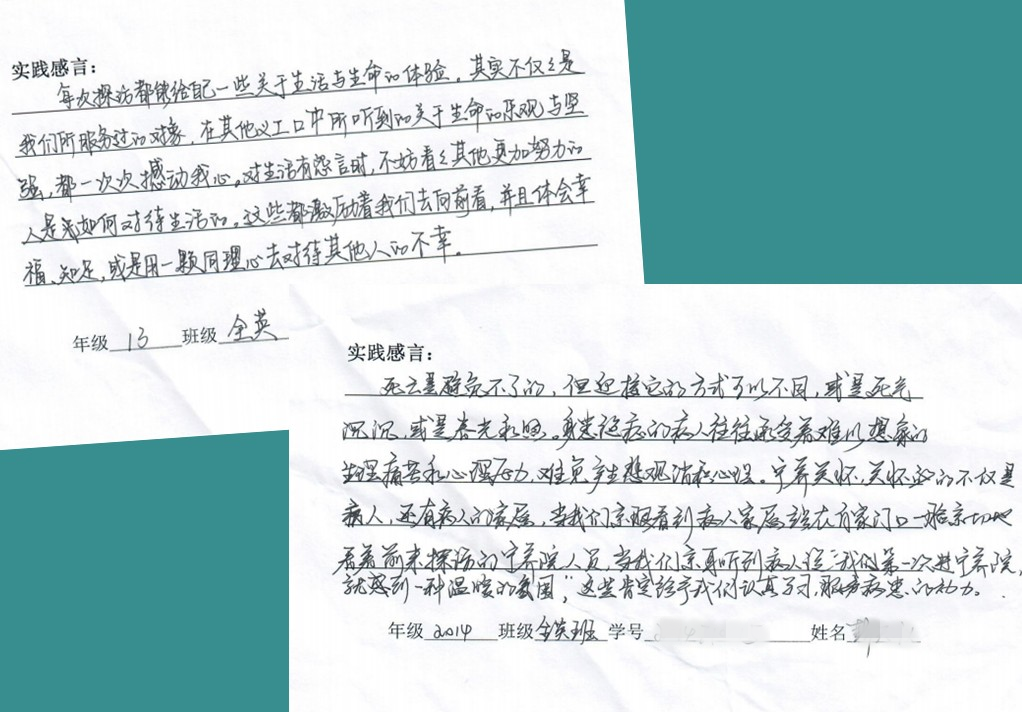 实践感言：
每次探访都能给自己一些关于生活与生命的体验。其实不仅仅是
我们所服务过的对象，在其他义工口中所听到的关于生命的乐观与坚
强，都一次次撼动我心。对生活有怨言时，不妨看看其他更加努力的
人是如何对待生活的。这些都激励着我们去向前看，并且体会幸
福、知足，或是用一颗同理心去对待其他人的不幸。
年级 13 班级 全英
实践感言：
死亡是避免不了的，但迎接它的方式可以不同，或是死气
沉沉，或是春光和煦。身患绝症的病人往往承受着难以想象的
生理痛苦和心理压力，难免产生悲观消极心理。宁养关怀，关怀的不仅是
病人，还有病人的家属，当我们亲眼看到病人家属站在自家门口一脸亲切地
看着前来探访的宁养院人员，当我们亲耳听到病人说“我们第一次进宁养院，
就感到一种温暖的氛围”，这些肯定给予我们认真学习，服务病患的动力。
年级 2014 班级 全英班 学号 姓名